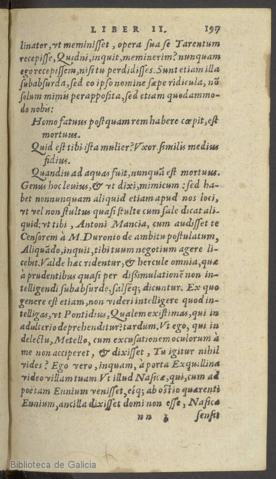 LIBER II. 197
linater, vt meminisset, opera sua se Tarentum
recepisse, Quidni, inquit, meminerim? nunquam
ego recepissem, nisi tu perdidisses. Sunt etiam illa
subabsurda, sed eo ipso nomine sæpe ridicula, nō
solum mimis perapposita, sed etiam quodammo-
do nobis:
Homo fatuus postquam rem habere cœpit, est
mortuus.
Quid est tibi ista mulier? Vxor. similis medius
fidius.
Quandiu ad aquas fuit, nunquā est mortuus.
Genus hoc leuius, & vt dixi, mimicum: sed ha-
bet nonnunquam aliquid etiam apud nos loci,
vt vel non stultus quasi stulte cum sale dicat ali-
quid: vt tibi, Antoni Mancia, cum audisset te
Censorem à M. Duronio de ambitu postulatum,
Aliquādo, inquit, tibi tuum negotium agere li-
cebit. Valde hæc ridentur, & hercule omnia, quæ
à prudentibus quasi per dißimulationē non in-
telligendi subabsurde, salseq; dicuntur. Ex quo
genere est etiam, non videri intelligere quod in-
telligas, vt Pontidius, Qualem existimas, qui in
adulterio deprehenditur? tardum. Vt ego, qui in
delectu, Metello, cum excusationem oculorum à
me non acciperet, & dixisset, Tu igitur nihil
vides? Ego vero, inquam, à porta Exquilina
video villam tuam Vt illud Nasicæ, qui, cum ad
poëtam Ennium venisset, eiq; ab ostio quærenti
Ennium, ancilla dixisset domi non esse, Nasica
nn sensit
Biblioteca de Galicia